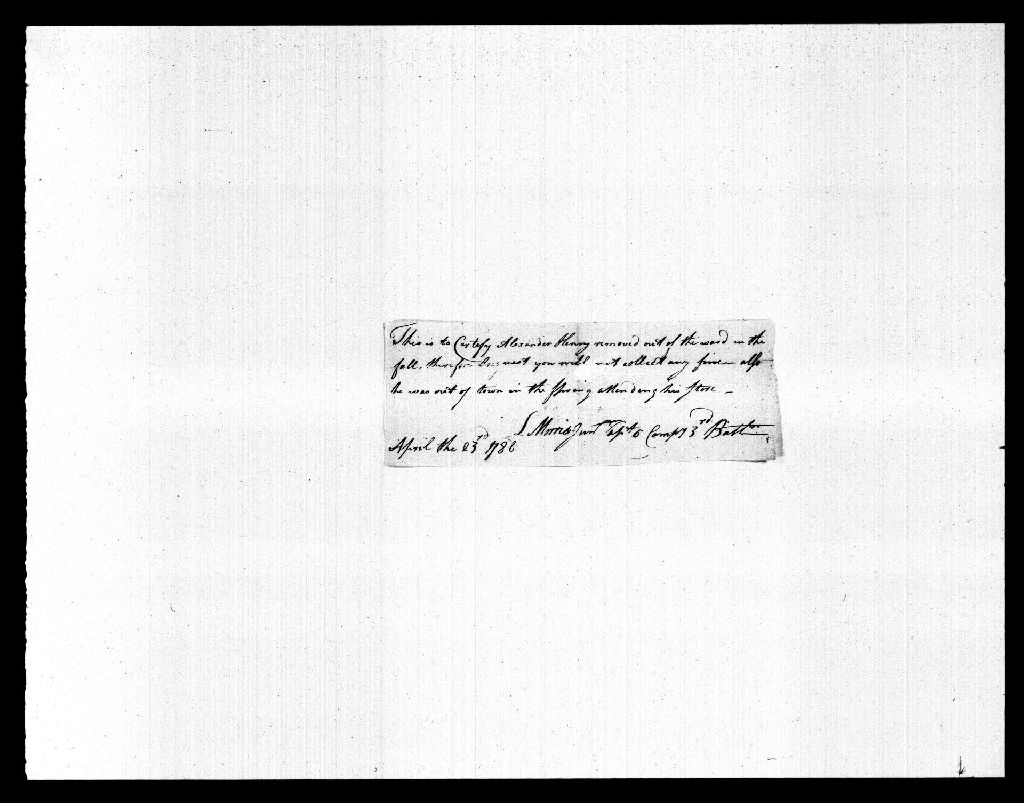 This is to Certefy Alexander Henry removed out of the ward in the
fall, therefor Request you will not collect any fine – also
he was out of town in the Spring attending his Store –
S Morris Junr Capt 6 Compy 3rd Battn
April the 23rd 1786